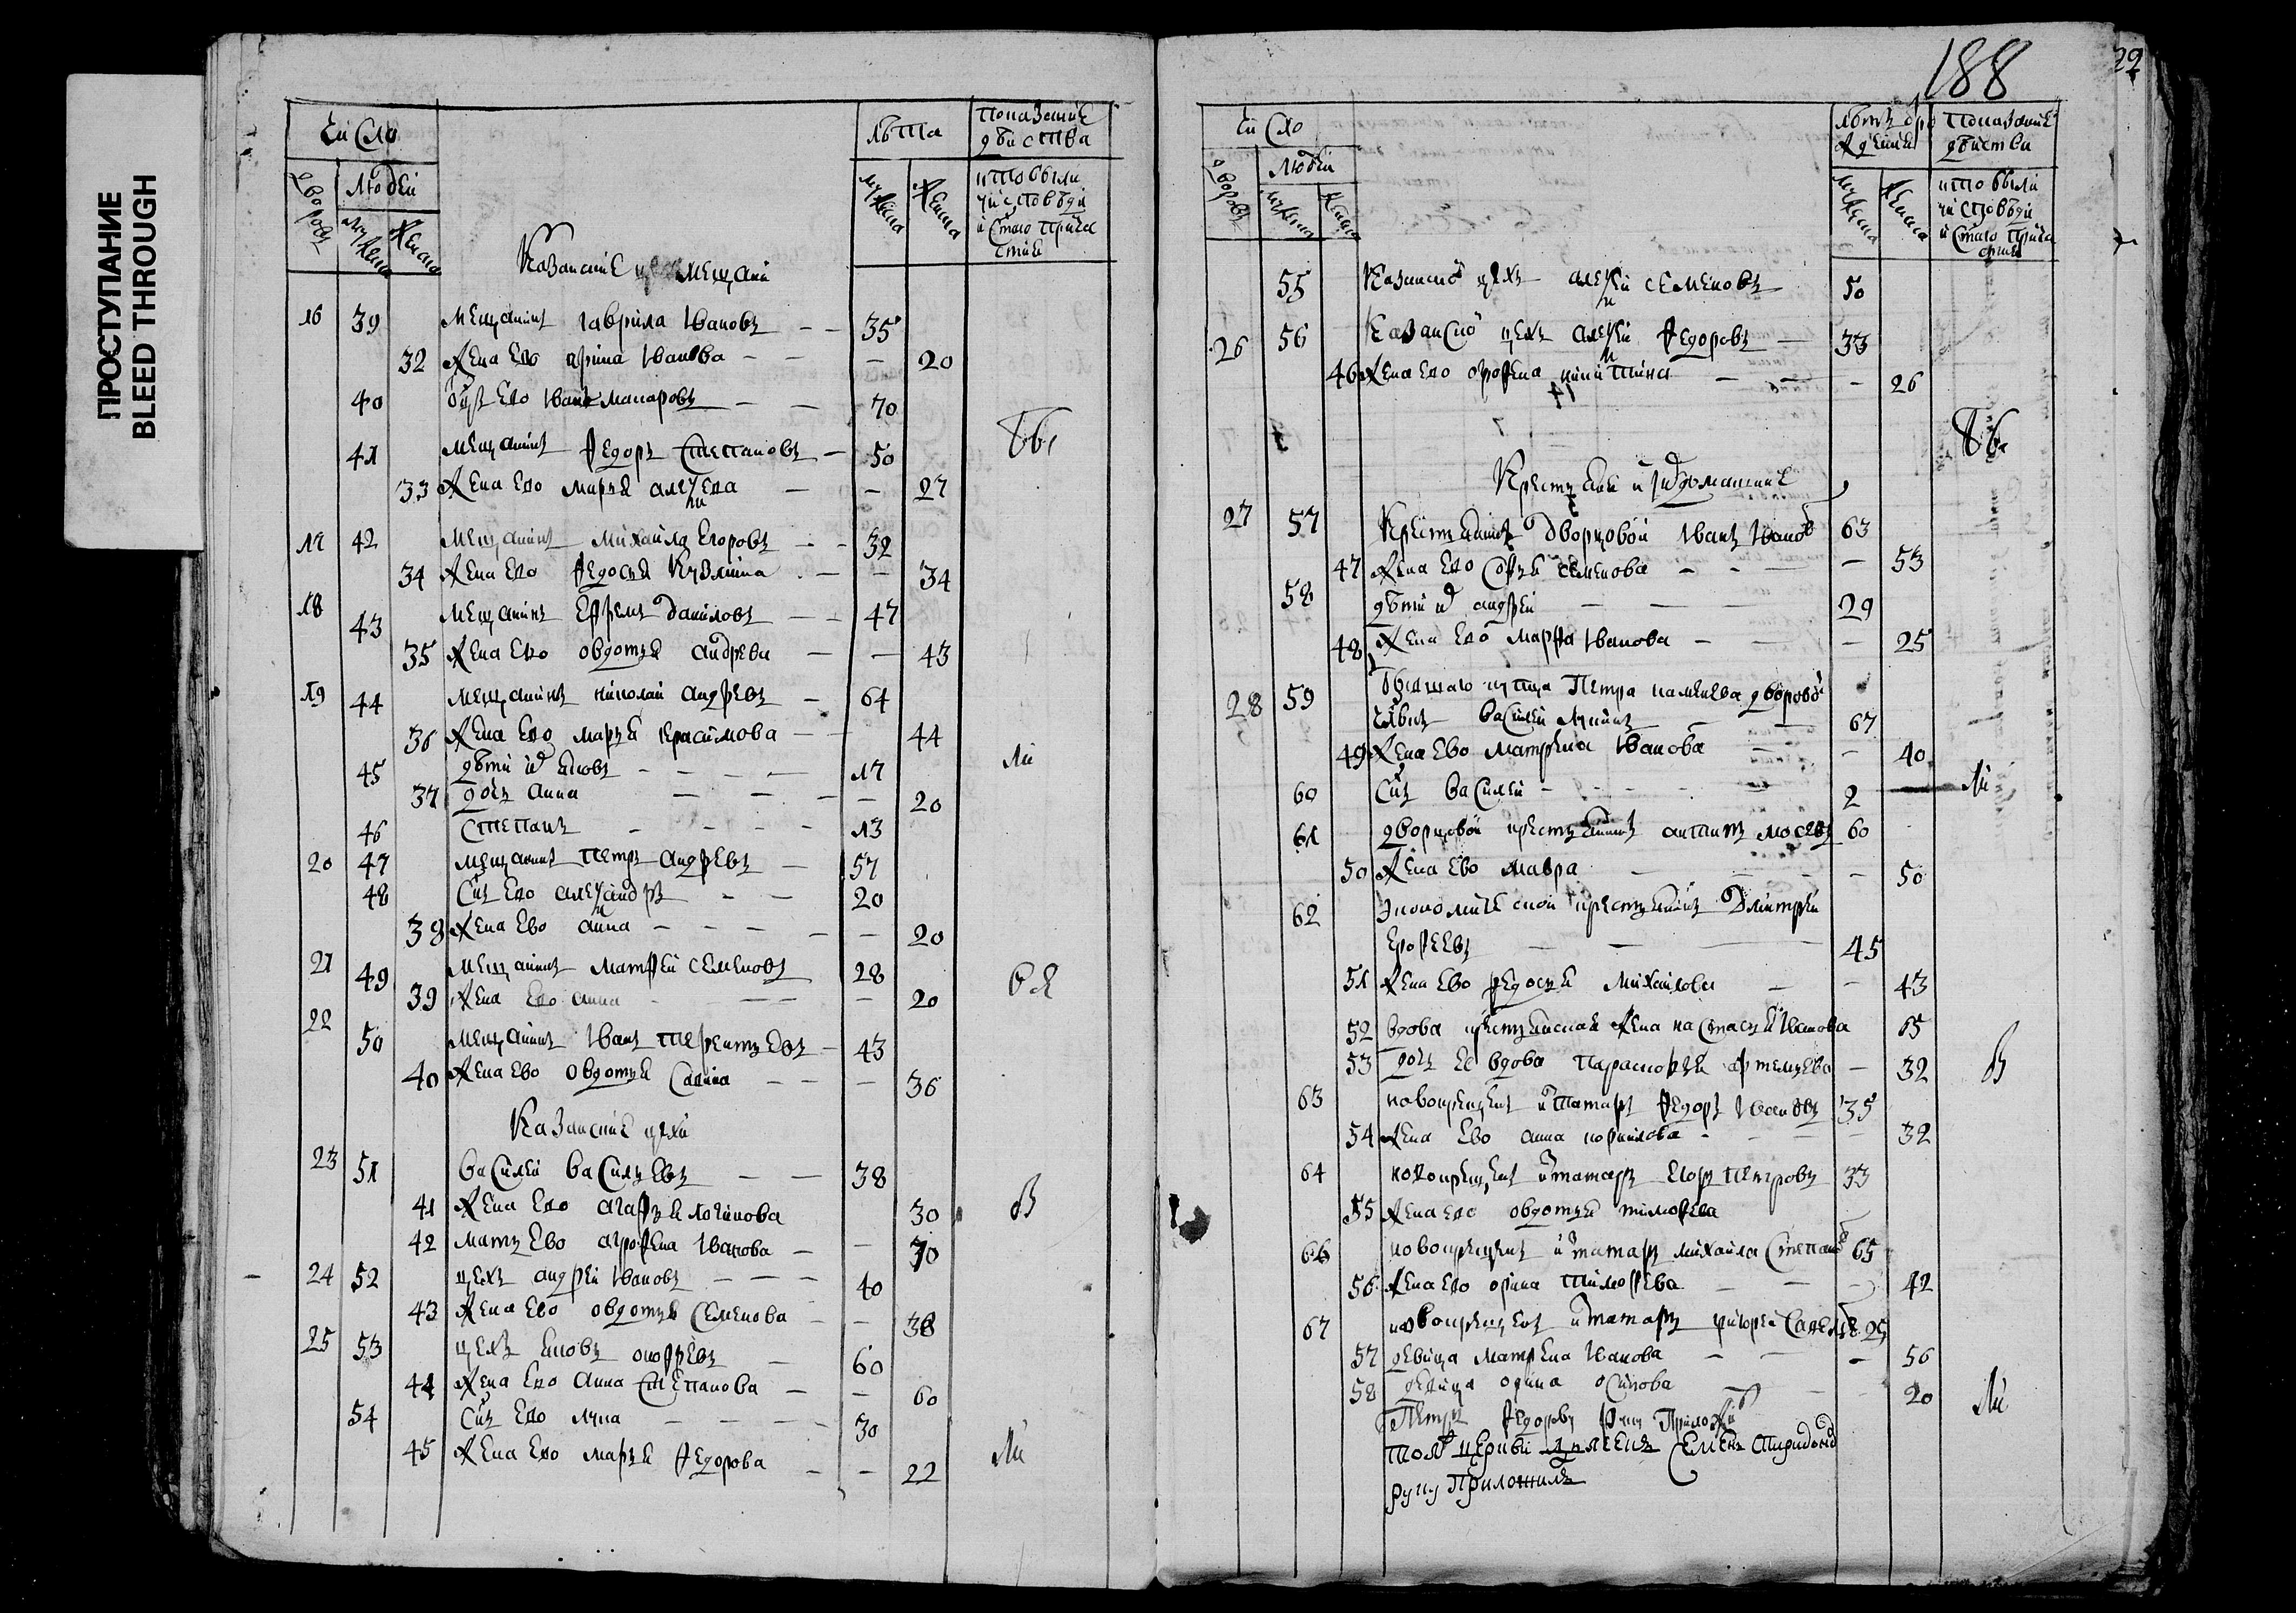 ПРОСТУПАНИЕ
BLEED THROUGH
Число
лѣта
показание
дѣиства
дворовъ
людей
мужеска
женска
мужеска
женска
кто были
у исповѣди
и стаго прича
стия
Казанские мещани
16 39 мещанинъ гаврила Ивановъ 35
32 жена ево Ирина Иванова 20
40 Иванъ макаровъ 70
41 мещанинъ федоръ степановъ 50
33 жена ево марья алексиева 27
17 42 мещанинъ михаила егоровъ 32
34 жена ево федосья кузмина 34
18 43 мещанинъ ефремъ даниловъ 47
35 жена ево овдотья андреева 43
19 44 мещанинъ николай андреевъ 64
36 жена ево марья герасимова 44
45 дѣти их яковъ 17
37 дочь анна 20
46 степанъ 13
20 47 мещанинъ петръ андреевъ 57
48 сынъ ево александръ 20
38 жена ево анна 20
21 49 мещанинъ матфей семеновъ 28
39 жена ево анна 20
22 50 мещанинъ Иванъ терентьевъ 43
40 жена ево овдотья савина 36
Казанские цехи
23 51 василей васильевъ 38
41 жена ево агафья логинова 30
42 мать ево агрофена Иванова 70
24 52 цехъ андрей Ивановъ 40
43 жена ево овдотья семенова 38
25 53 цехъ яковъ онофреевъ 60
44 жена ево анна степанова 60
54 сынъ ево лука 30
45 жена ево марья федорова 22
188
22
Число
показание
дѣиства
дворовъ
людей
мужеска
женска
мужеска
женска
кто были
у исповѣди
и стаго прича
стия
55 Казанскои цехъ алексий семеновъ 50
26 56 Казанской цехъ алексий федоровъ 33
46 жена ево огрофена никитина 26
27 57 Крестьянинъ дворцовой Иванъ Ивановъ 63
47 жена ево софья семенова 53
58 дѣти их андрей 29
48 жена ево марфа Иванова 25
28 59 купца Петра каменева дворовой
человѣкъ василей лукинъ 67
49 жена ево матрена Иванова 40
60 сынъ василей 2
61 дворцовой крестьянинъ антипъ мосеевъ 60
50 жена ево мавра 50
62 экономической крестьянинъ дмитрей
ерофеевъ 45
51 жена ево федосья михайлова 43
52 вдова крестьянская жена настасья Иванова 65
53 дочь ее вдова парасковья артемьева 32
63 новокрещенъ ис татаръ федоръ Ивановъ 35
54 жена ево анна корнилова 32
64 новокрещенъ ис татаръ егоръ петровъ 33
55 жена ево овдотья тимофеева
66 новокрещенъ ис татаръ михаила степановъ 65
56 жена ево орина тимофеева 42
67 новокрещенъ ис татаръ григорей савельевъ 25
57 девица матрена Иванова 56
58 девица орина осипова 20
Петръ федоровъ руку приложилъ
той церкви семенъ спиридоновъ
руку приложилъ